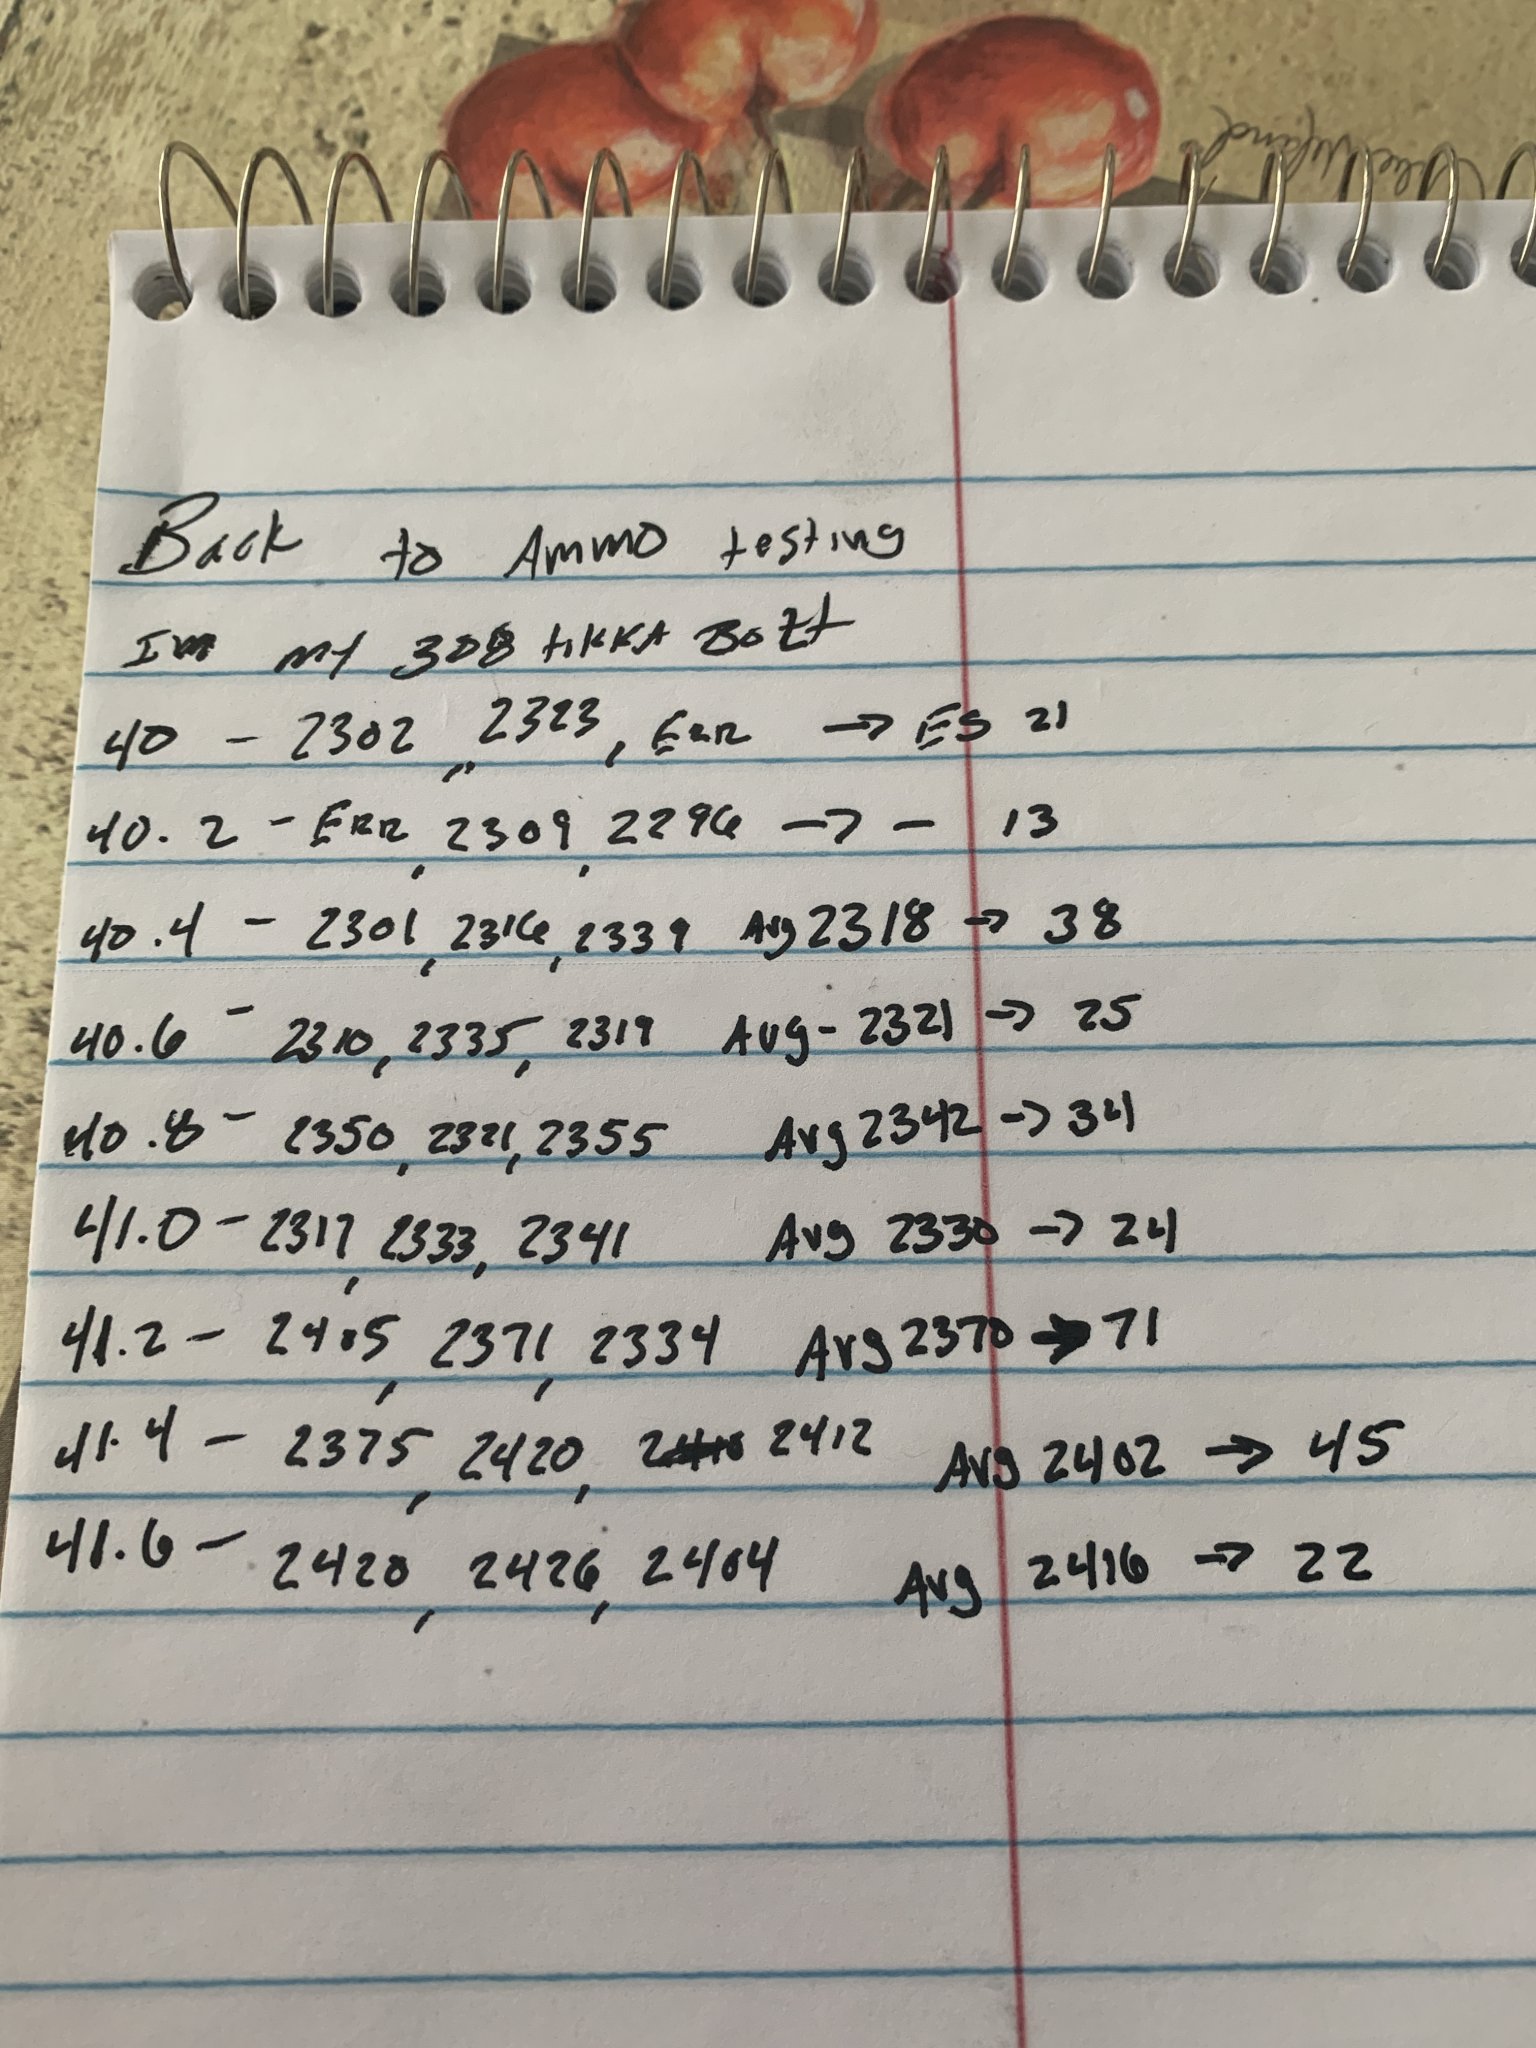 Back to Ammo testing
Im my 308 tikka Bolt
40 - 2302, 2323, Err → ES 21
40.2 - Err, 2309, 2296 → - 13
40.4 - 2301, 2316, 2339 Avg 2318 → 38
40.6 - 2310, 2335, 2319 Avg - 2321 → 25
40.8 - 2350, 2321, 2355 Avg 2342 → 34
41.0 - 2317, 2333, 2341 Avg 2330 → 24
41.2 - 2405, 2371, 2334 Avg 2370 → 71
41.4 - 2375, 2420, 2412 Avg 2402 → 45
41.6 - 2420, 2426, 2404 Avg 2416 → 22